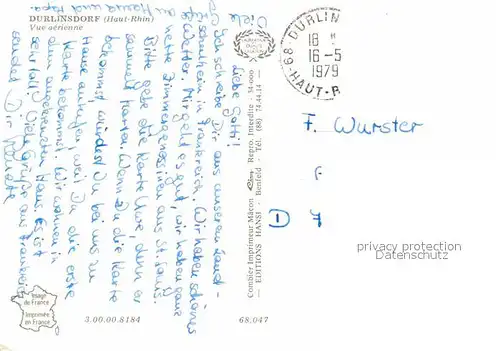 DURLINSDORF (Haut-Rhin)
Vue aérienne
Liebe Gotti!
Ich schreibe Dir aus unserem Land-
schulheim in Frankreich. Wir haben schönes
Wetter. Mir geht es gut, wir haben ganz
nette Zimmergenossinen aus St.
Bitte gebe die Karte Uwe, denn er
sammelt Karten. Wenn Du die Karte
bekommst, würdest Du bei uns zu
Hause anrufen, weil Du die erste
Karte bekommst. Wir wohnen in
dem angekreuzten Haus. Es ist
sehr toll! Viele Grüße aus Frankreich
sendet Dir
Viele
Grüße
an Hanna und Papa.
Combier Imprimeur Mâcon Cim Repro. Interdite - 34-000
EDITIONS HANSI - Benfeld - Tél. (88) 74.44.14
68-DURLIN
18 H
16-5
1979
HAUT-R
F. Wurster
D 7
privacy protection
Datenschutz
Image
de France
Imprimée
en France
3.00.00.8184
68.047